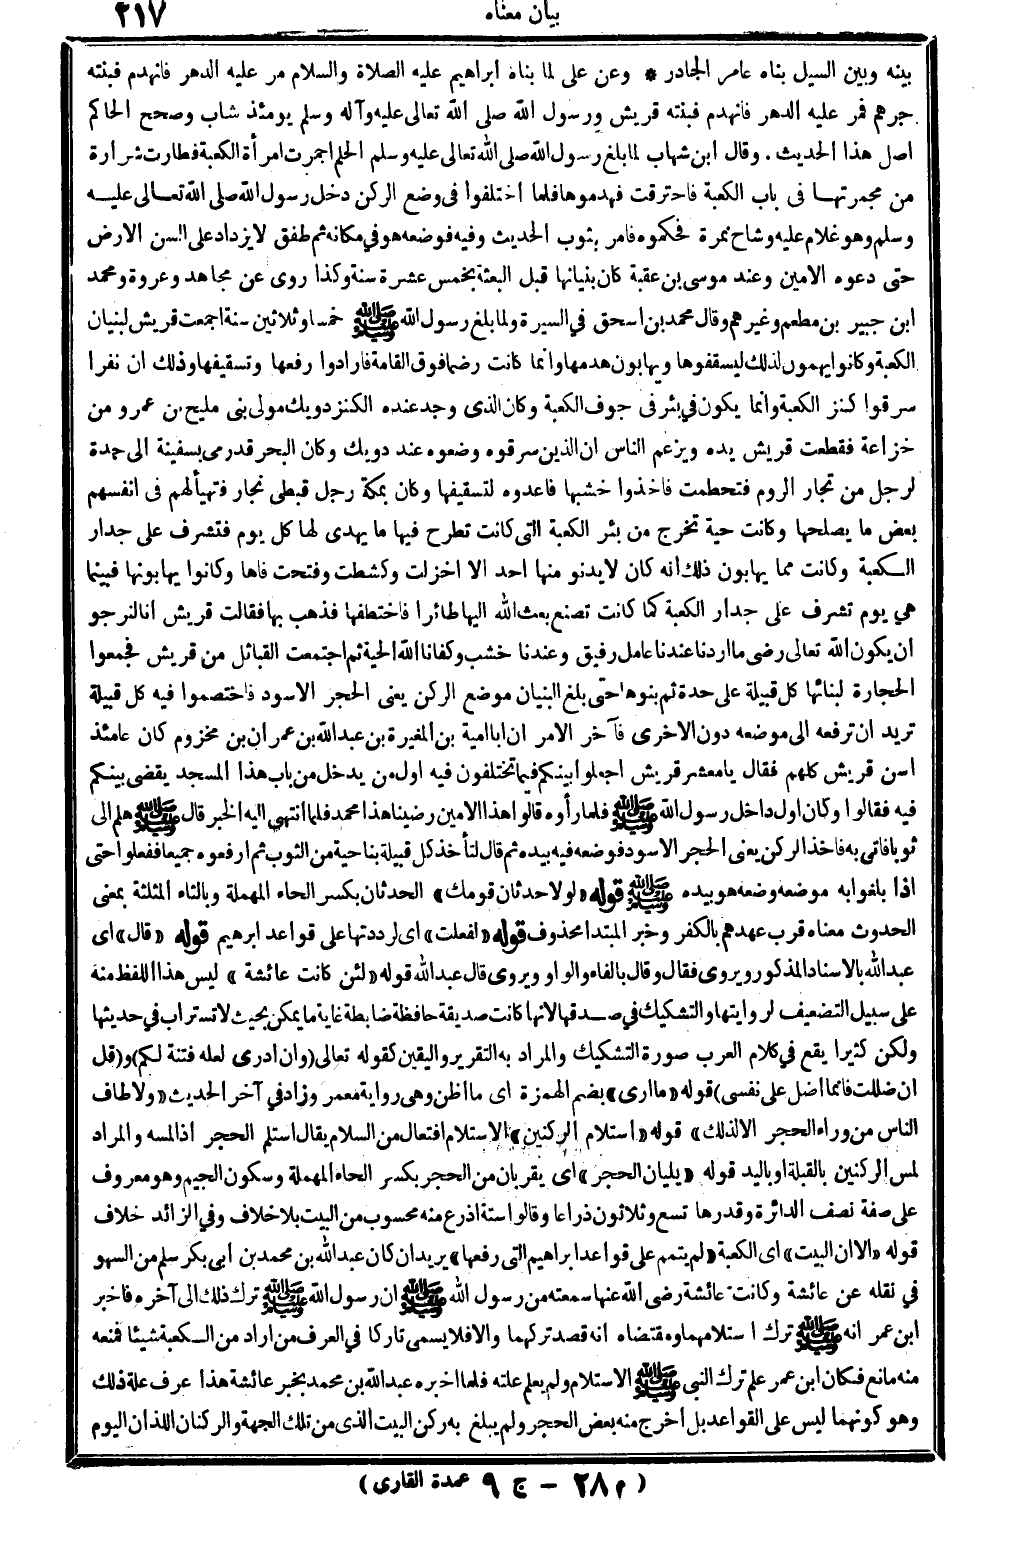 بيان معناه ٢١٧
بينه وبين السيل بناه عامر الجادر * وعن على لما بناه ابراهيم عليه الصلاة والسلام مر عليه الدهر فانهدم فبنته
جرهم فمر عليه الدهر فانهدم فبنته قريش ورسول الله صلى الله تعالى عليه وآله وسلم يومئذ شاب وصحح الحاكم
اصل هذا الحديث . وقال ابن شهاب لما بلغ رسول الله صلى الله تعالى عليه وسلم الحلم اجمرت امرأة الكعبة فطارت شرارة
من مجمرتها فى باب الكعبة فاحترقت فهدموها فلما اختلفوا فى وضع الركن دخل رسول الله صلى الله تعالى عليه
وسلم وهو غلام عليه وشاح نمرة فحكموه فامر بثوب الحديث وفيه فوضعه هو في مكانه ثم طفق لا يزداد على السن الا رضى
حتى دعوه الامين وعند موسى بن عقبة كان بنيانها قبل البعثة بخمس عشرة سنة وكذا روى عن مجاهد وعروة ومحمد
ابن جبير بن مطعم وغيرهم وقال محمد بن اسحق في السيرة ولما بلغ رسول الله ﷺ خمسا وثلاثين سنة اجمعت قريش لبنيان
الكعبة وكانوا يهمون لذلك ليسقفوها ويهابون هدمها وانما كانت رضما فوق القامة فارادوا رفعها وتسقيفها وذلك ان نفرا
سرقوا كنز الكعبة وانما يكون في بئر فى جوف الكعبة وكان الذى وجد عنده الكنز دويك مولى بنى مليح بن عمرو من
خزاعة فقطعت قريش يده ويزعم الناس ان الذين سرقوه وضعوه عند دويك وكان البحر قد رمى بسفينة الى جدة
لرجل من تجار الروم فتحطمت فاخذوا خشبها فاعدوه لتسقيفها وكان بمكة رجل قبطى نجار فتهيأ لهم فى انفسهم
بعض ما يصلحها وكانت حية تخرج من بئر الكعبة التى كانت تطرح فيها ما يهدى لها كل يوم فتشرف على جدار
الكعبة وكانت مما يهابون ذلك أنه كان لا يدنو منها احد الا اخزلت وكشطت وفتحت فاها وكانوا يهابونها فبينما
هي يوم تشرف على جدار الكعبة كما كانت تصنع بعث الله اليها طائرا فاختطفها فذهب بها فقالت قريش انا لنرجو
ان يكون الله تعالى رضى ما اردنا عندنا عامل رفيق وعندنا خشب وكفانا الله الحية ثم اجتمعت القبائل من قريش فجمعوا
الحجارة لبنائها كل قبيلة على حدة ثم بنوها حتى بلغ البنيان موضع الركن يعنى الحجر الاسود فاختصموا فيه كل قبيلة
تريد ان ترفعه الى موضعه دون الاخرى فآخر الامر ان ابا امية بن المغيرة بن عبد الله بن عمر ان بن مخزوم كان عامئذ
اسن قريش كلهم فقال يا معشر قريش اجعلوا بينكم فيما تختلفون فيه اول من يدخل من باب هذا المسجد يقضى بينكم
فيه فقالوا وكان اول داخل رسول الله ﷺ فلما رأوه قالوا هذا الامين رضينا هذا محمد فلما انتهى اليه الخبر قال ﷺ هلم الى
ثوبا فاتى به فاخذ الركن يعنى الحجر الاسود فوضعه فيه بيده ثم قال لتأخذ كل قبيلة بناحية من الثوب ثم ارفعوه جميعا ففعلوا حتى
اذا بلغوا به موضعه وضعه هو بيده ﷺ قوله «لولا حدثان قومك» الحدثان بكسر الحاء المهملة وبالثاء المثلثة بمعنى
الحدوث معناه قرب عهدهم بالكفر وخبر المبتدا محذوف قوله «لفعلت» اى لرددتها على قواعد ابرهيم قوله «قال» اى
عبد الله بالاسناد المذكور ويروى فقال وقال بالفاء والواو ويروى قال عبد الله قوله «لئن كانت عائشة» ليس هذا اللفظ منه
على سبيل التضعيف لروايتها والتشكيك في صدقها لانها كانت صديقة حافظة ضابطة غاية ما يمكن بحيث لا تستراب في حديثها
ولكن كثيرا يقع في كلام العرب صورة التشكيك والمراد به التقرير واليقين كقوله تعالى (وان ادرى لعله فتنة لكم) و(قل
ان ضللت فانما اضل على نفسى) قوله «ما ارى» بضم الهمزة اى ما اظن وهى رواية معمر وزاد في آخر الحديث «ولا طاف
الناس من وراء الحجر الا لذلك» قوله «استلام الركنين» الاستلام افتعال من السلام يقال استلم الحجر اذا لمسه والمراد
لمس الركنين بالقبلة او باليد قوله «يليان الحجر» اى يقربان من الحجر بكسر الحاء المهملة وسكون الجيم وهو معروف
على صفة نصف الدائرة وقدرها تسع وثلاثون ذراعا وقالوا ستة اذرع منه محسوب من البيت بلا خلاف وفي الزائد خلاف
قوله «الا ان البيت» اى الكعبة «لم يتمم على قواعد ابراهيم التى رفعها» يريد ان كان عبد الله بن محمد بن ابى بكر سلم من السهو
في نقله عن عائشة وكانت عائشة رضى الله عنها سمعته من رسول الله ﷺ ان رسول الله ﷺ ترك ذلك الى آخره فاخبر
ابن عمر انه ﷺ ترك استلامهما ومقتضاه انه قصد تركهما والا فلا يسمى تاركا في العرف من اراد من الكعبة شيئا فمنعه
منه مانع فكان ابن عمر علم ترك النبى ﷺ الاستلام ولم يعلم علته فلما اخبره عبد الله بن محمد بخبر عائشة هذا عرف علة ذلك
وهو كونهما ليس على القواعد بل اخرج منه بعض الحجر ولم يبلغ به ركن البيت الذى من تلك الجهة والركنان اللذان اليوم
( م ٢٨ - ج ٩ عمدة القارى )